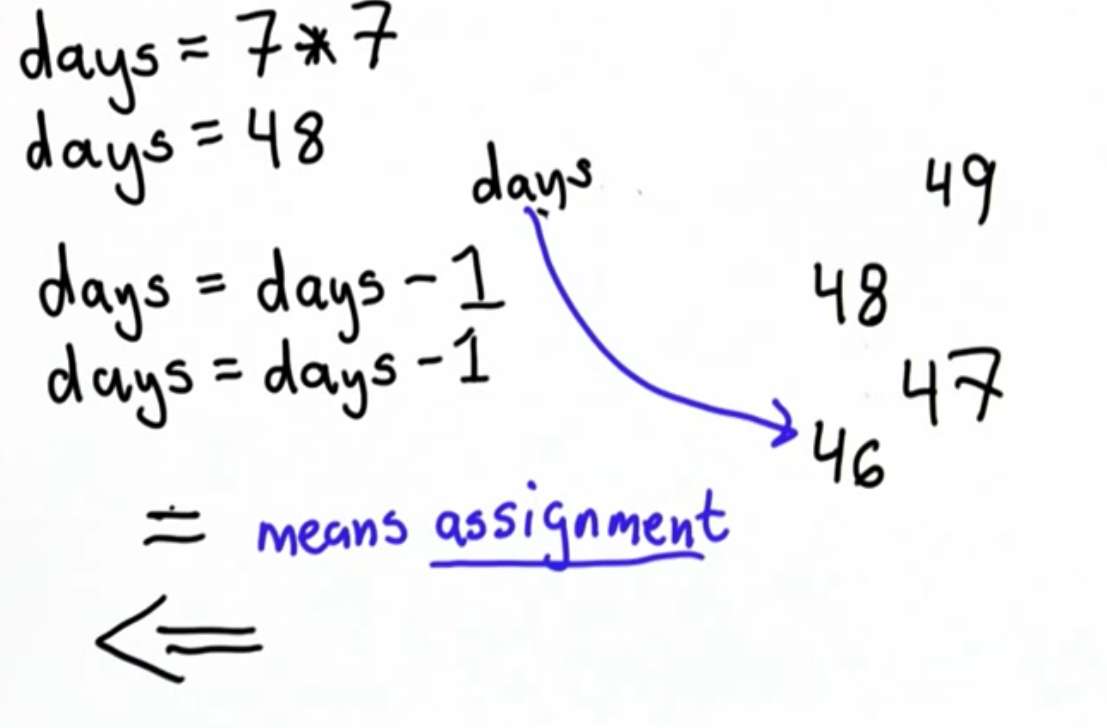 days = 7 * 7
days = 48
days
49
days = days - 1
48
days = days - 1
47
46
= means assignment
<=